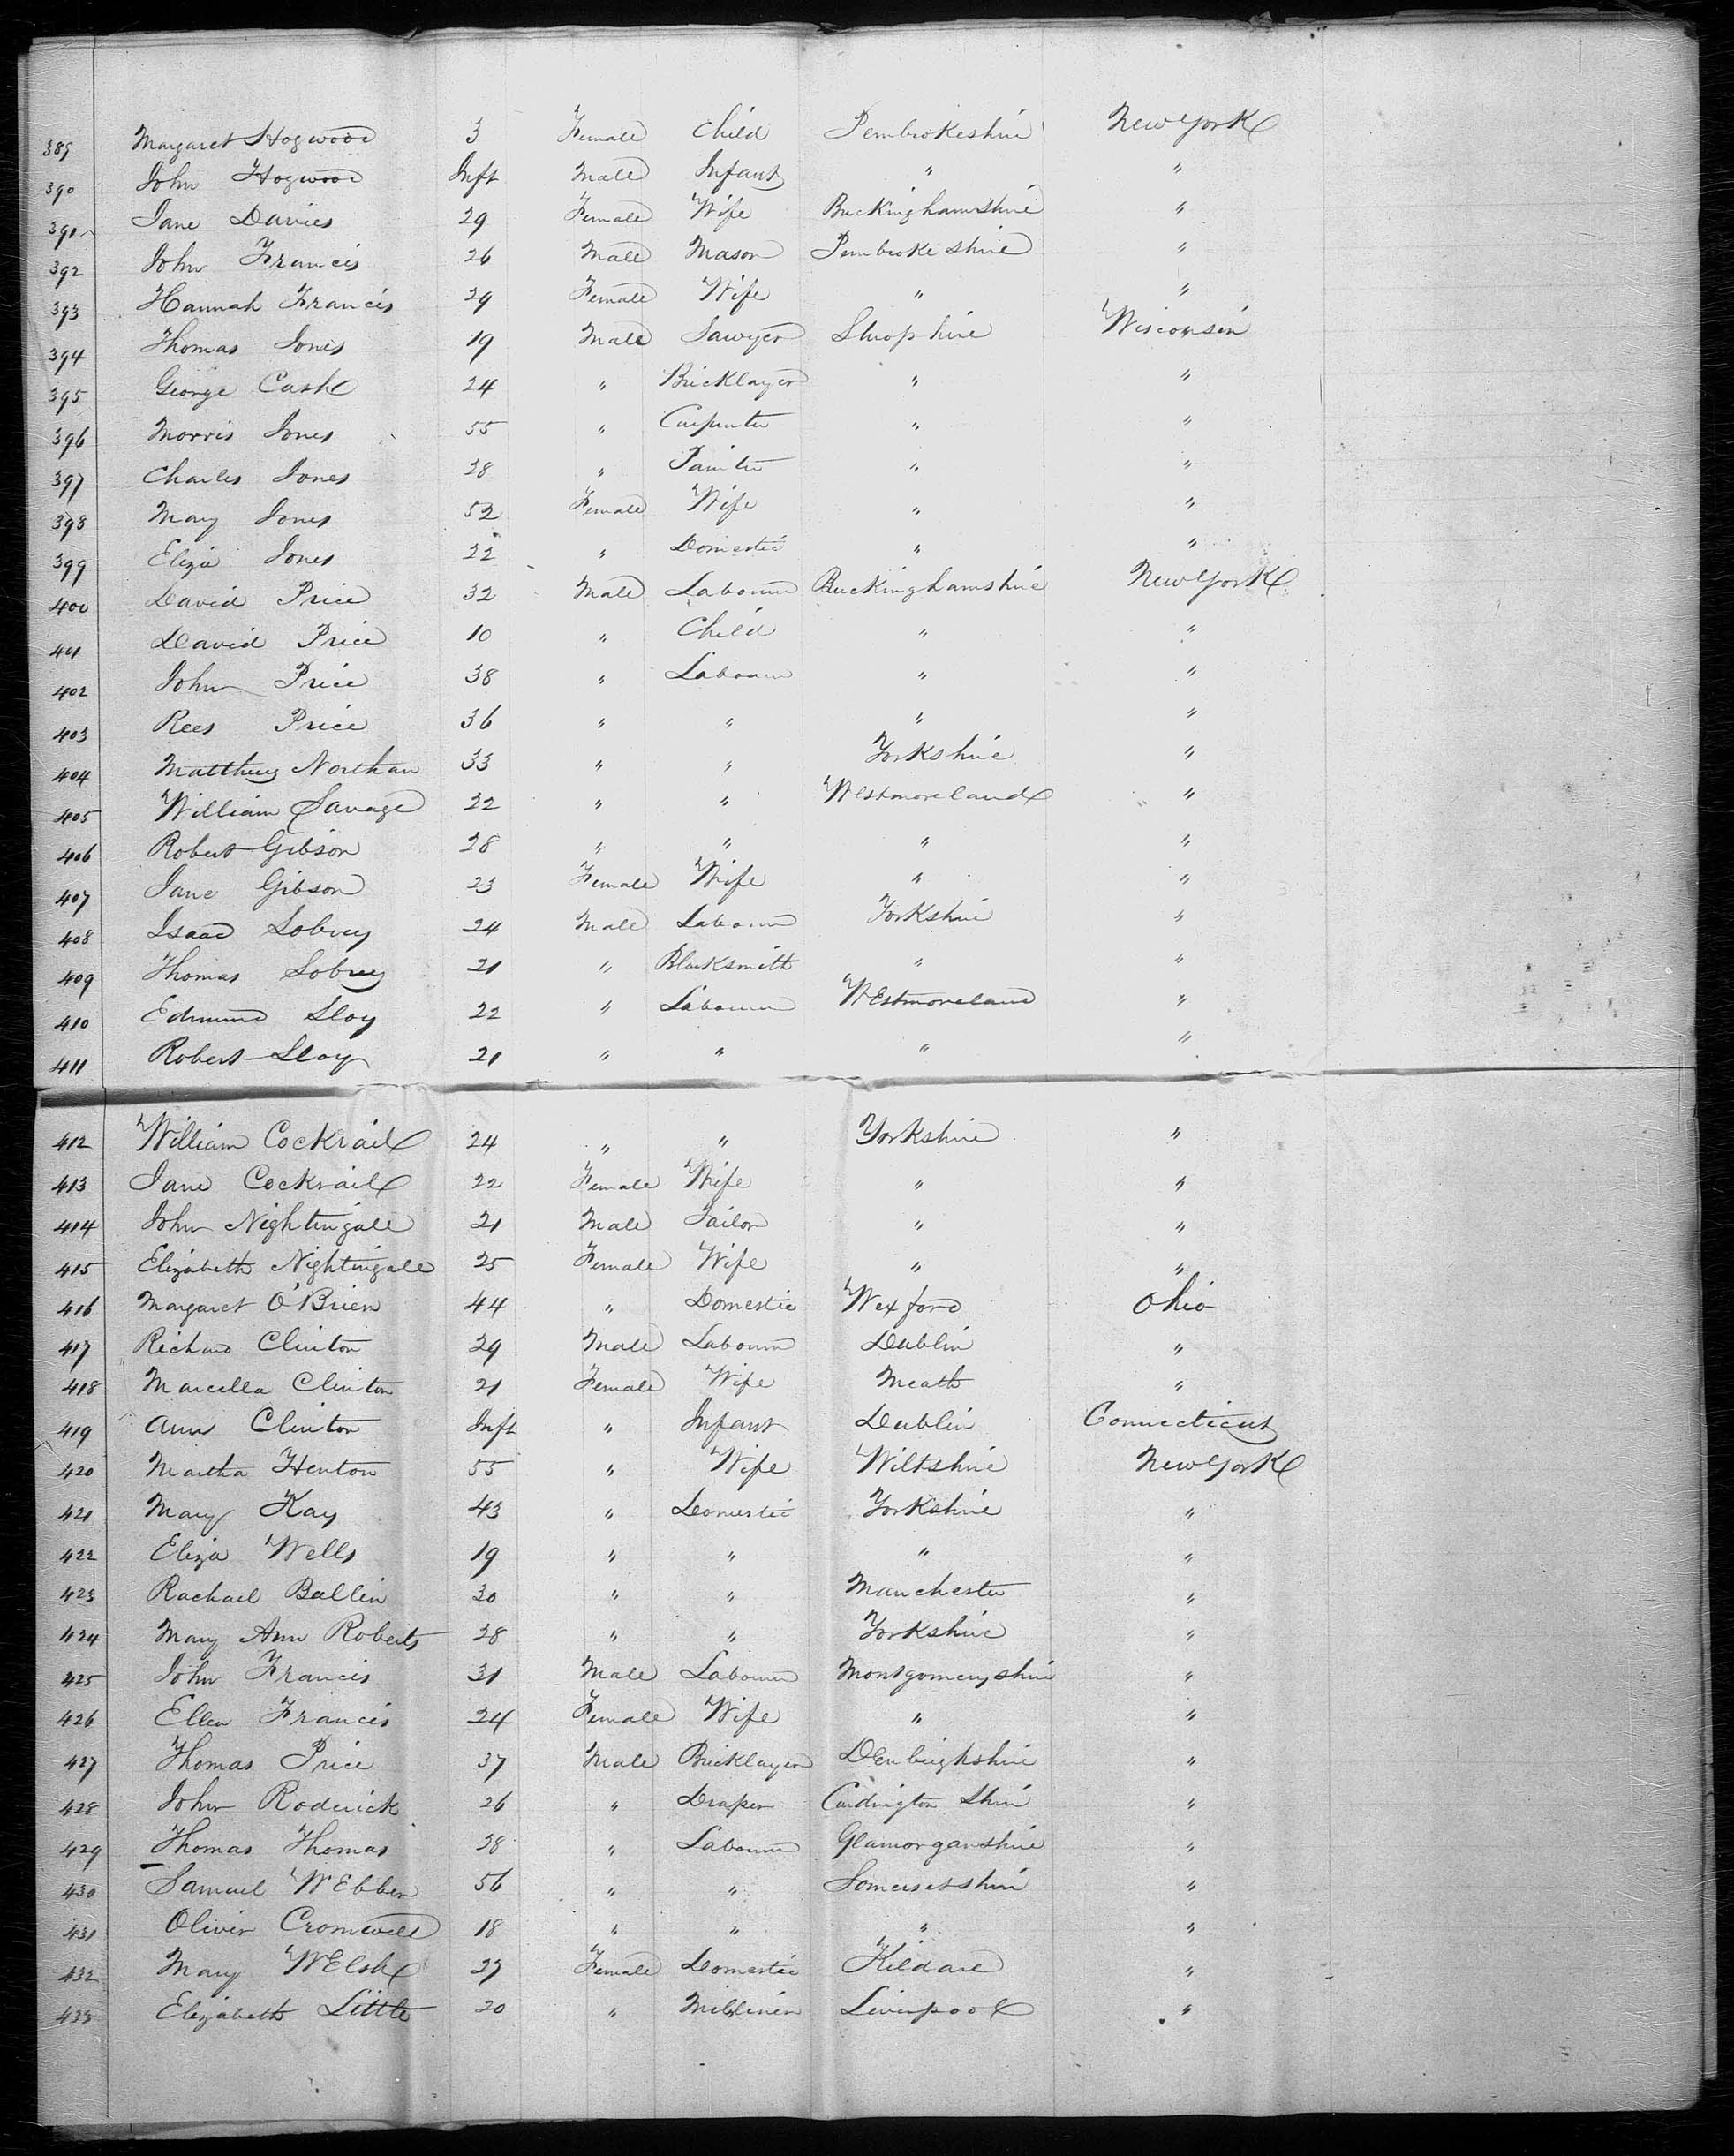 389 Margaret Hogwood 3 Female Child Pembrokeshire New York
390 John Hogwood Inft Male Infant " "
391 Jane Davies 29 Female Wife Buckinghamshire "
392 John Francis 26 Male Mason Pembrokeshire "
393 Hannah Francis 29 Female Wife " "
394 Thomas Jones 19 Male Sawyer Shropshire Wisconsin
395 George Cash 24 " Bricklayer " "
396 Morris Jones 55 " Carpenter " "
397 Charles Jones 28 " Painter " "
398 Mary Jones 52 Female Wife " "
399 Eliza Jones 22 " Domestic " "
400 David Price 32 Male Labourer Buckinghamshire New York
401 David Price 10 " Child " "
402 John Price 38 " Labourer " "
403 Rees Price 36 " " " "
404 Matthew Northan 33 " " Yorkshire "
405 William Savage 22 " " Westmoreland "
406 Robert Gibson 28 " " " "
407 Jane Gibson 23 Female Wife " "
408 Isaac 24 Male Labourer Yorkshire "
409 Thomas 21 " Blacksmith " "
410 Edmund Sloy 22 " Labourer Westmoreland "
411 Robert Sloy 21 " " " "
412 William Cockrail 24 " " Yorkshire "
413 Jane Cockrail 22 Female Wife " "
414 John Nightingale 21 Male Tailor " "
415 Elizabeth Nightingale 25 Female Wife " "
416 Margaret O'Brien 44 " Domestic Wexford Ohio
417 Richard Clinton 29 Male Labourer Dublin "
418 Marcella Clinton 21 Female Wife Meath "
419 Ann Clinton Inft " Infant Dublin Connecticut
420 Martha Henton 55 " Wife Wiltshire New York
421 Mary Kay 43 " Domestic Yorkshire "
422 Eliza Wells 19 " " " "
423 Rachael Ballin 30 " " Manchester "
424 Mary Ann Roberts 28 " " Yorkshire "
425 John Francis 31 Male Labourer Montgomeryshire "
426 Ellen Francis 24 Female Wife " "
427 Thomas Price 37 Male Bricklayer Denbeighshire "
428 John Roderick 26 " Draper Cardington Shire "
429 Thomas Thomas 38 " Labourer Glamorganshire "
430 Samuel Webber 56 " " Somersetshire "
431 Oliver Cromwell 18 " " " "
432 Mary Welsh 27 Female Domestic Kildare "
433 Elizabeth Little 20 " Milliner Liverpool "